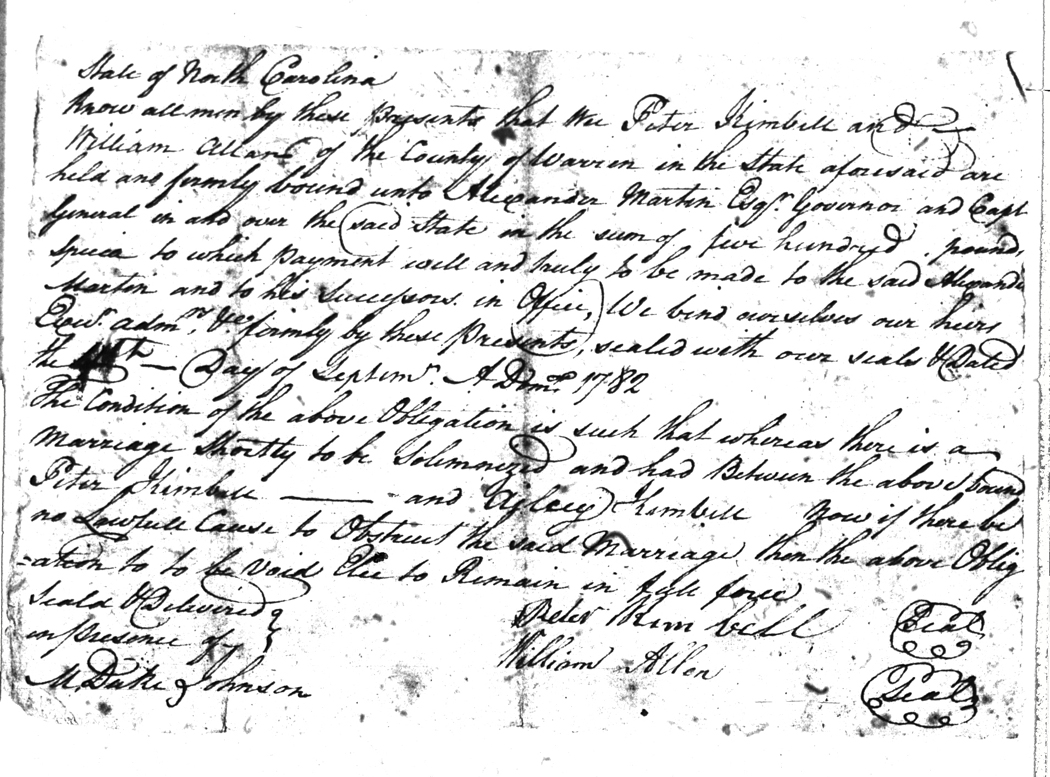 State of North Carolina
Know all men by these presents that Wee Peter Kimbell and
William Allan of the County of Warren in the State aforesaid are
held and firmly bound unto Alexander Martin Esqr. Governor and Capt
General in and over the said State in the sum of five hundred pounds
specia to which payment well and truly to be made to the said Alexander
Martin and to his Successors in Office, We bind ourselves our heirs
Execrs. admrs. &c firmly by these Presents, sealed with our seals & Dated
the — Day of Septemr. A Dom. 1782
The Condition of the above Obligation is such that whereas there is a
Marriage Shortly to be Solemnized and had Between the above bound
Peter Kimbell —— and Kimbell Now if there be
no Lawfull Cause to Obstruct the said Marriage then the above Oblig
=ation to to be Void Else to Remain in full force
Seald & Delivered
in presence of
Peter Kimbell Seal
William Allen Seal
M. Duke Johnson